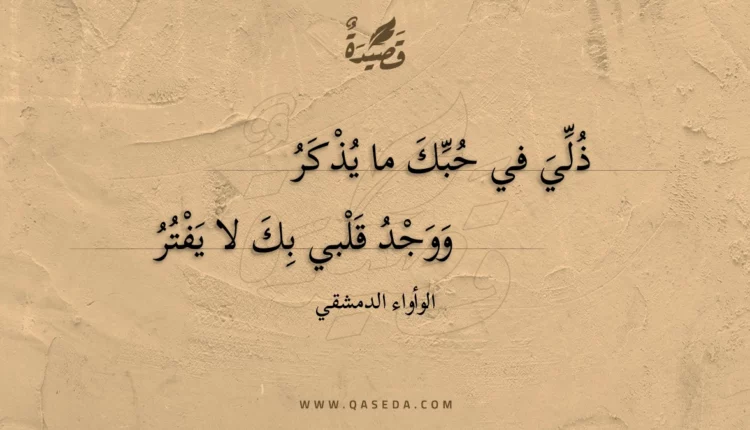 قَصِيدَةٌ
ذُلِّيَ في حُبِّكَ ما يُذْكَرُ
وَوَجْدُ قَلْبي بِكَ لا يَفْتُرُ
الوأواء الدمشقي
WWW.QASEDA.COM